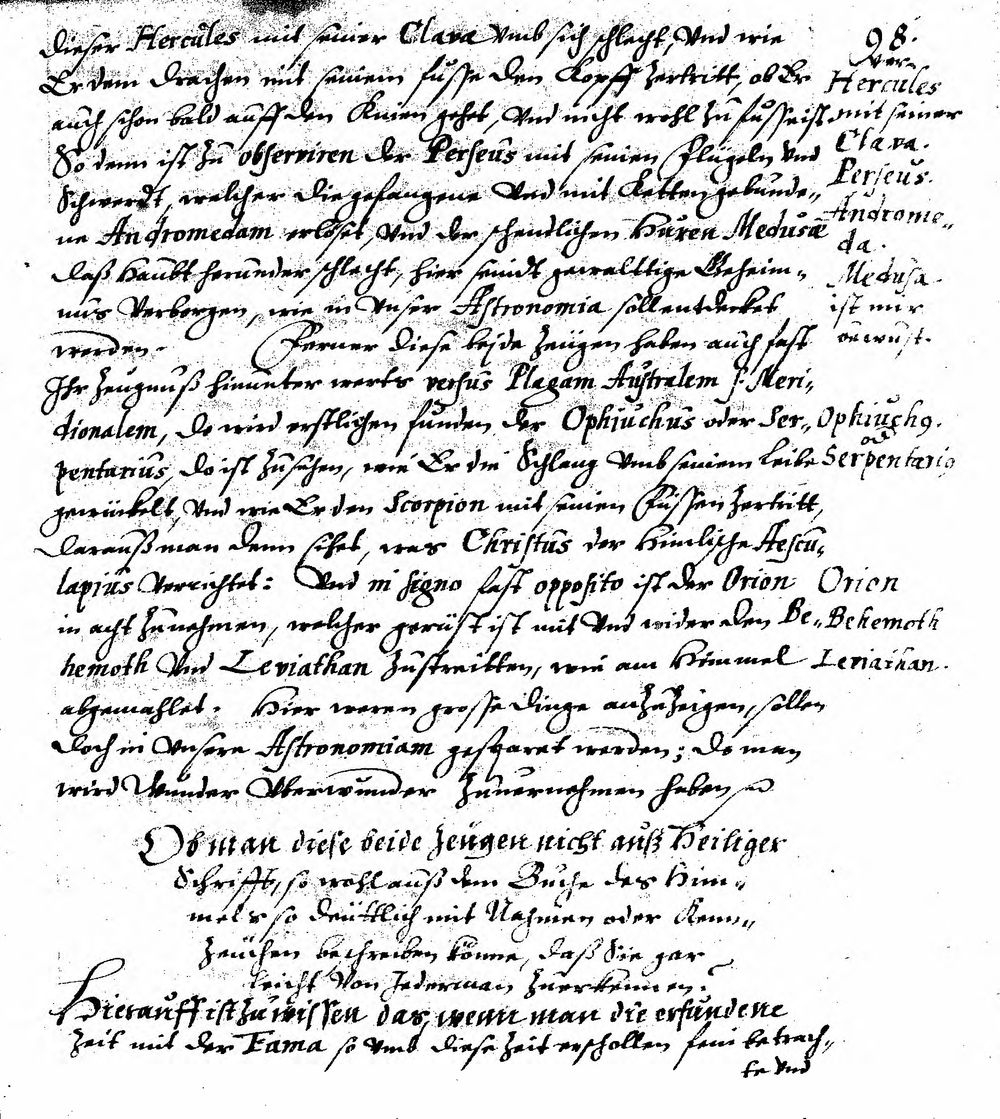 98.
dieser Hercules mit seiner Clava vmb sich schlecht, Vnd wie
Er dem drachen mit seinem fusse den Kopff zertritt, ob Er
auch schon bald auff den Knien gehet, Vnd nicht wohl zu fuss ist.
So denn ist zu observiren der Perseus mit seinen flügeln Vnd
Schwerdt, welcher die gefangene Vnd mit Ketten gebunde„
ne Andromedam erlöset, Vnd der schendlichen Huren Medusæ
daß Haubt herunder schlecht, hier seindt gewalttige Geheim„
nus Verborgen, wie in Vnser Astronomia soll entdecket
werden. Ferner diese beide Zeügen haben auch fast
Ihr Zeugnuß hinunter werts versus Plagam Australem s. Meri„
dionalem, do wird erstlichen funden der Ophiuchus oder Ser„
pentarius, do ist zu sehen, wie Er die Schlang vmb seinem leibe
gewückelt, Vnd wie Er den Scorpion mit seinen füssen zertritt,
darauß man denn sihet, was Christus der Himlische Aescu„
lapius Verrichtet: Vnd in signo fast opposito ist der Orion
in acht zu nehmen, welcher gerüst ist mit Vnd wider den Be„
hemoth Vnd Leviathan zustreitten, wie am Himmel
abgemahlet. Hier weren grosse dinge anzuzeigen, sollen
doch in Vnsere Astronomiam gesparet werden; do man
wird Wunder Vber wunder zuuernehmen haben
Hercules
mit seiner
Clava.
Perseus.
Androme„
da.
Medusa.
ist mir
Ophiuch9.
od
Serpentari9
Orion
Behemoth
Leviathan.
Ob man diese beide Zeügen nicht auß Heiliger
Schrifft, so wohl auß dem Buche des Him„
mels so deüttlich mit Nahmen oder Kenn„
Zeüchen beschreiben könne, daß Sie gar
leicht Von Jederman Zuerkennen?
Hierauff ist zu wissen das, wenn man die erfundene
Zeit mit der Fama so vmb diese Zeit erschollen fein betrach„
te Vnd